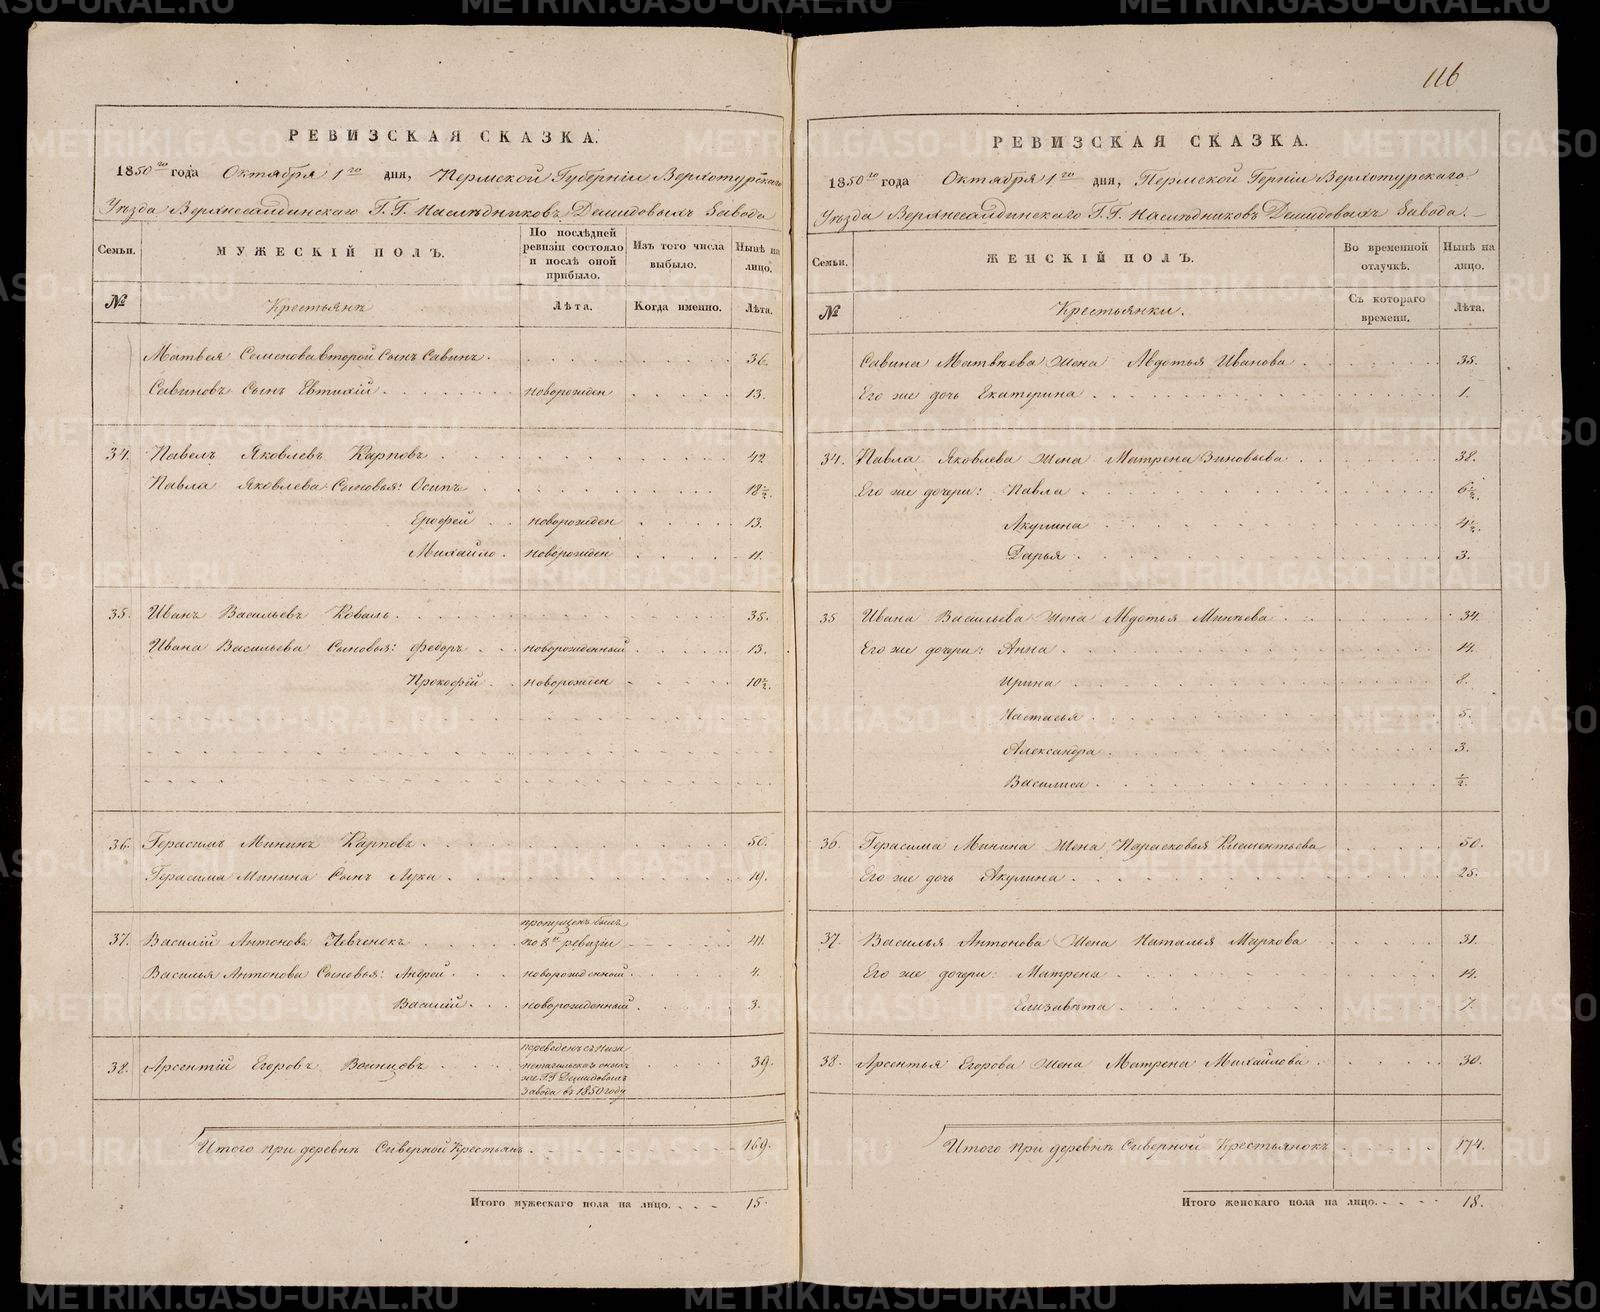 116
РЕВИЗСКАЯ СКАЗКА.
1850го года Октября 1го дня, Пермской Губерніи Верхотурскаго
Уѣзда Верхнесалдинскаго Г.Г. Наслѣдниковъ Демидовыхъ Завода
Семьи.
МУЖЕСКІЙ ПОЛЪ.
По послѣдней ревизіи состояло и послѣ оной прибыло.
Изъ того числа выбыло.
Нынѣ на лицо.
№
Крестьянъ
Лѣта.
Когда именно.
Лѣта.
Матвея Семенова второй Сынъ Савинъ. 36.
Савиновъ Сынъ Евтихій новорожден 13.
34. Павелъ Яковлевъ Карповъ 42
Павла Яковлева Сыновья: Осипъ 18½.
Ерофей новорожден 13.
Михайло. новорожден 11.
35. Иванъ Васильевъ Коваль. 35.
Ивана Васильева Сыновья: Федоръ новорожденный 13.
Прокофій новорожден 10½.
36. Герасимъ Мининъ Карповъ 50.
Герасима Минина Сынъ Лука 19.
37. Василій Антоновъ пропущенъ былъ по 8й ревизіи 41.
Василья Антонова Сыновья: Андрей. новорожденный 4.
Василій новорожденный 3.
38. Арсентій Егоровъ 39.
Завода въ 1850 году
Итого при деревнѣ Сѣверной Крестьянъ 169.
Итого мужескаго пола на лицо. 15.
РЕВИЗСКАЯ СКАЗКА.
1850го года Октября 1го дня, Пермской Герніи Верхотурскаго
Уѣзда Верхнесалдинскаго Г.Г. Наслѣдниковъ Демидовыхъ Завода.
Семьи.
ЖЕНСКІЙ ПОЛЪ.
Во временной отлучкѣ.
Нынѣ на лицо.
№
Крестьянки.
Съ котораго времени.
Лѣта.
Савина Матвѣева жена Авдотья Иванова 35.
Его же дочь Екатерина 1.
34. Павла Яковлева жена Матрена Зиновьева 38.
Его же дочери: Павла 6½.
Акулина 4½.
Дарья 3.
35 Ивана Васильева жена Авдотья Минѣева 34.
Его же дочери: Анна 14.
Ирина 8.
Настасья 5.
Александра 3.
Василиса ½.
36. Герасима Минина жена Парасковья Клементьева 50.
Его же дочь Акулина 25.
37. Василья Антонова жена Наталья Маркова 31.
Его же дочери: Матрена 14.
Елизавѣта 7.
38. Арсентья Егорова жена Матрена Михайлова 30.
Итого при деревнѣ Сѣверной Крестьянокъ 174.
Итого женскаго пола на лицо. 18.
METRIKI.GASO-URAL.RU